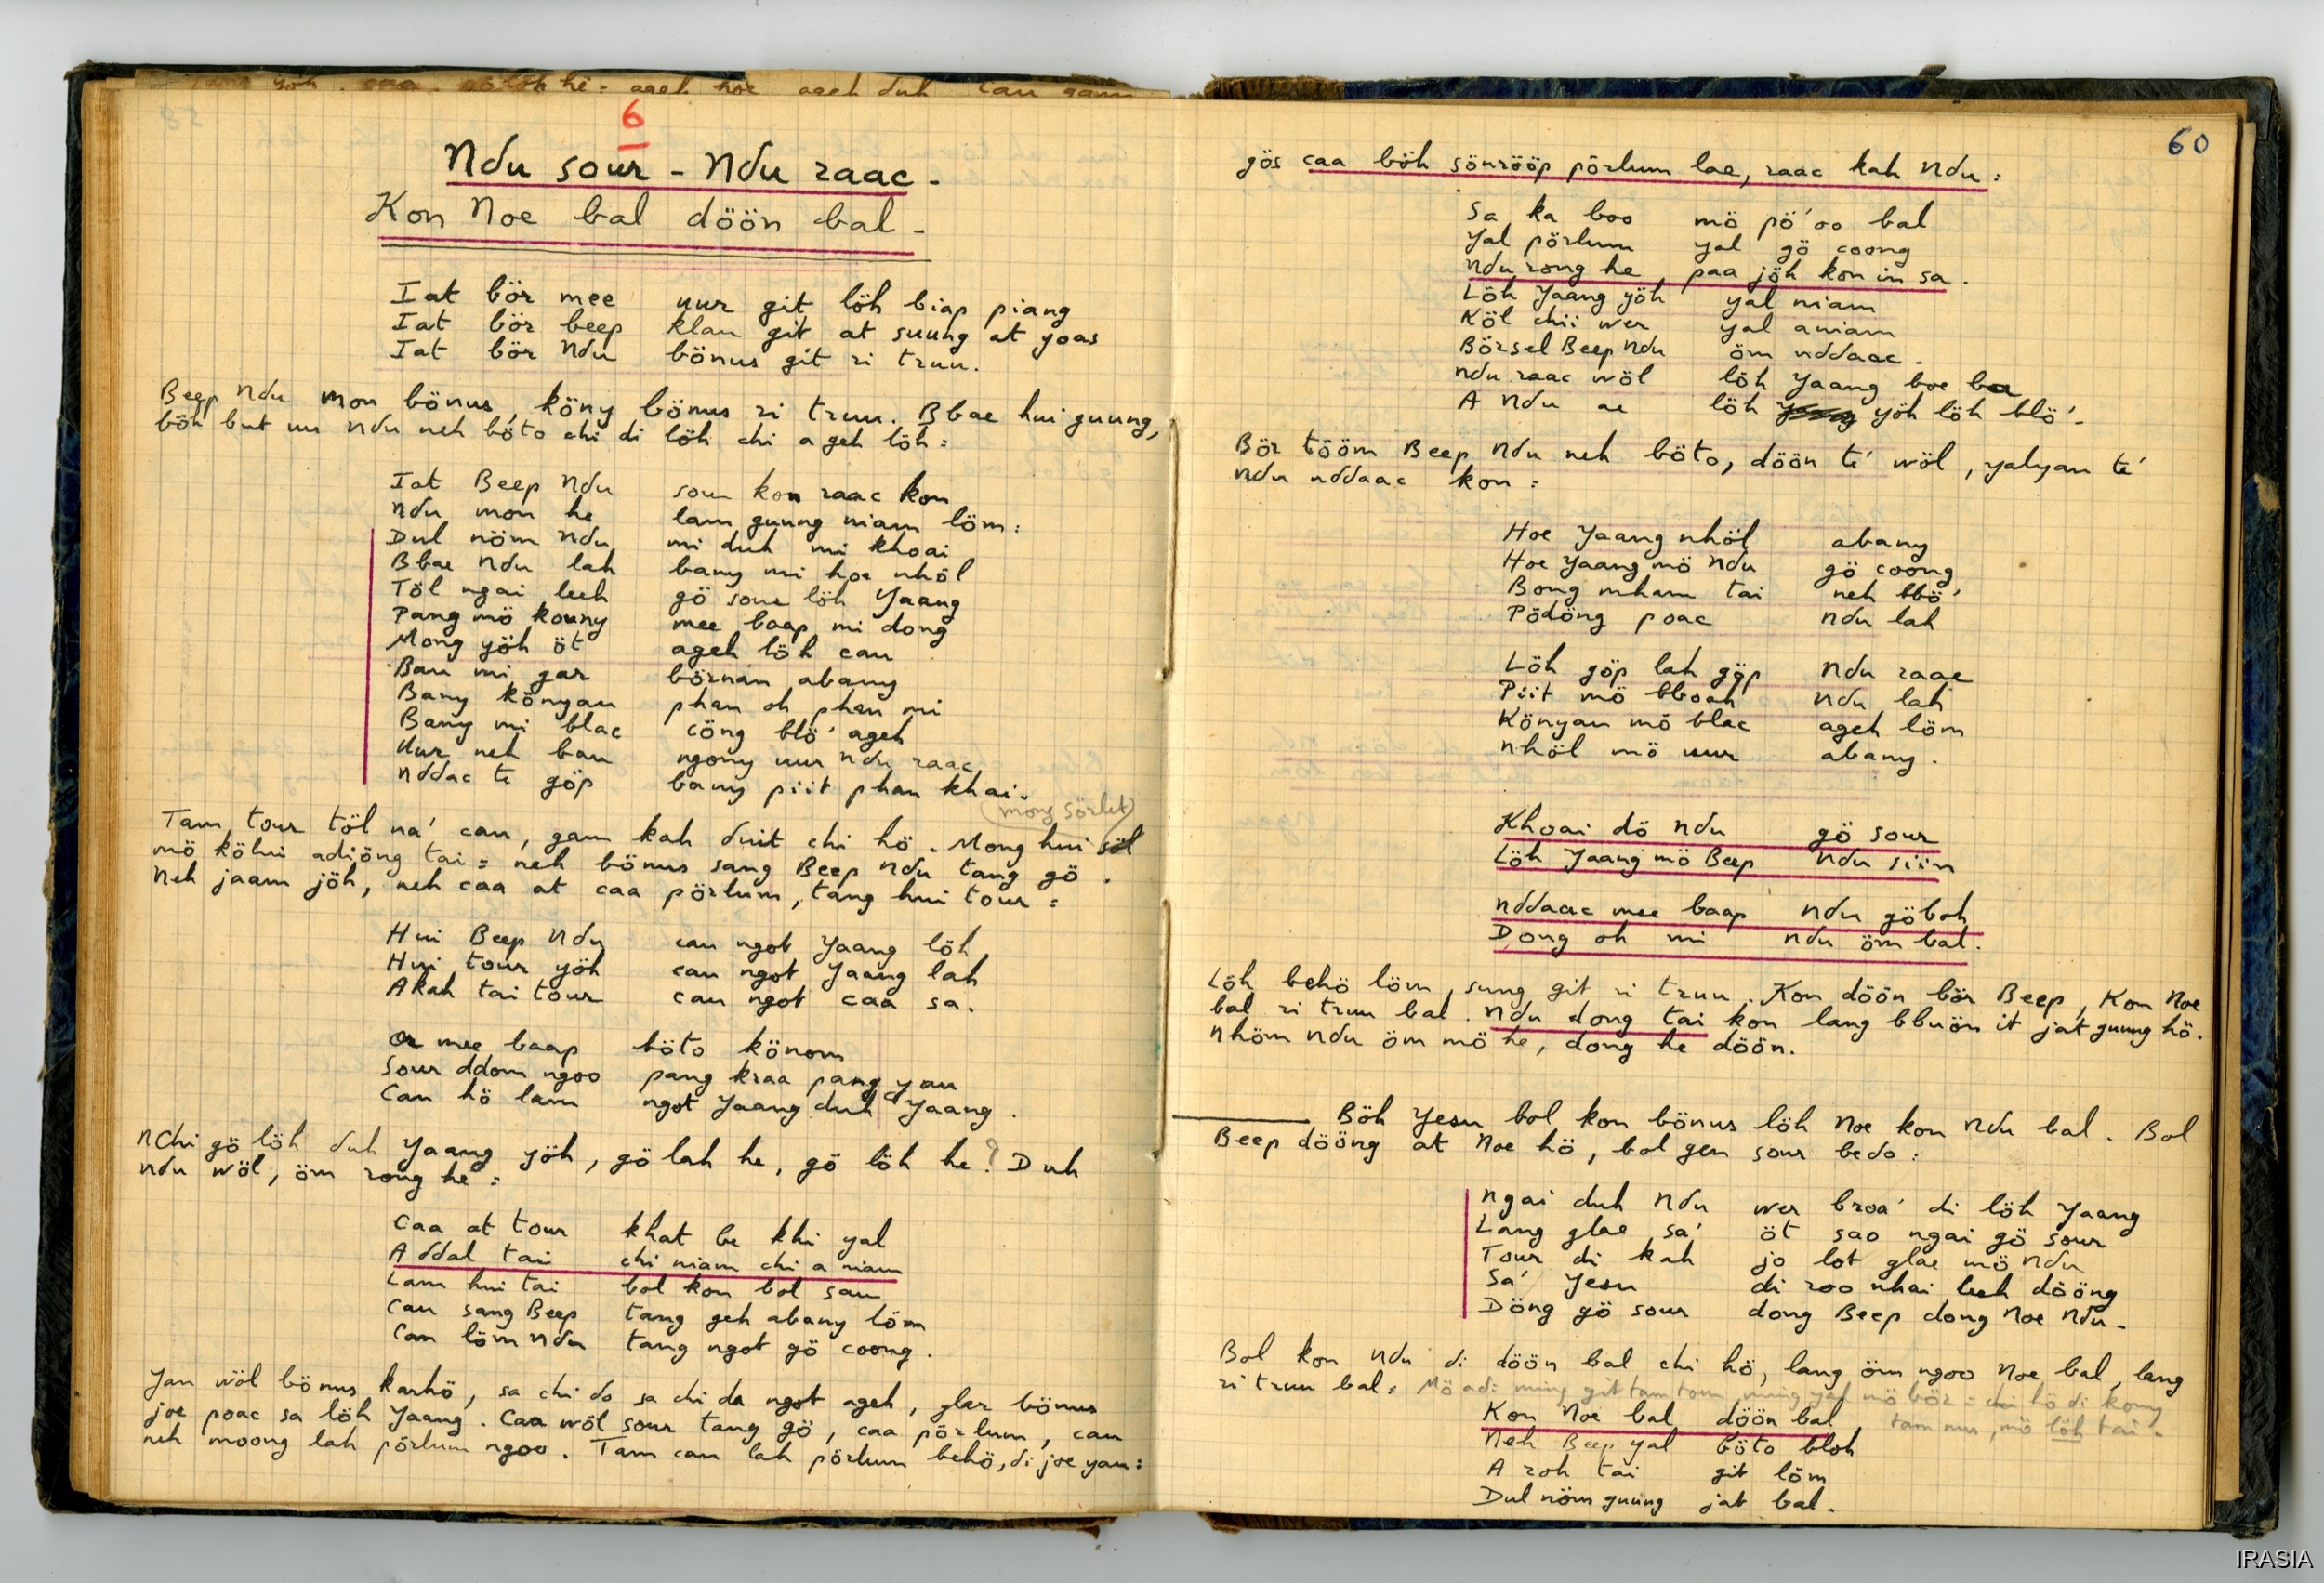 6
Ndu sour - Ndu raac -
Kon Noe bal döön bal -
Iat bör mee uur git löh biap piang
Iat bör beep klau git at suung at yoas
Iat bör Ndu bönus git ri truu.
Beep Ndu mon bönus, köny bönus ri truu. Bbae hui guung,
böh but uu Ndu neh böto chi di löh chi ageh löh =
Iat Beep Ndu sour kon raac kon
Ndu mon he lam guung niam löm :
Dul nöm Ndu mi duh mi khoai
Bbae Ndu lah bany mi hoe nhöl
Töl ngai leeh gö soue löh Yaang
Pang mö kouny mee baap mi dong
Mong yöh öt ageh löh cau
Bau mi gar börnan abany
Bany könyau phan oh phan mi
Bany mi blac cöng blö' ageh
Uur neh bau ngony uur Ndu raac
Nddac te göp bany piit phan khai.
(mong sörlet)
Tam tour töl na' cau, gam kah duit chi hö. Mong hui söl
mö köhui adiöng tai = neh bönus sang Beep Ndu tang gö.
Neh jaam jöh, neh caa at caa pörlum, tang hui tour =
Hui Beep Ndu cau ngot Yaang löh
Hui tour yöh cau ngot Yaang lah
Akah tai tour cau ngot caa sa.
Or mee baap böto könom
Sour ddom ngoo pang kraa pang yau
Cau hö lam ngot Yaang duh Yaang.
Nchi gö löh duh Yaang yöh, gö lah he, gö löh he? Duh
Ndu wöl, öm rong he =
Caa at tour khat be khi yal
Addal tai chi niam chi a niam
Lam hui tai bol kon bol sau
Cau sang Beep tang geh abany löm
Cau löm Ndu tang ngot gö coong.
Yau wöl bönus karhö, sa chi do sa chi da ngot ageh, glar bönus
joe poac sa löh Yaang. Caa wöl sour tang gö, caa pörlum, cau
neh moong lah pörlum ngoo. Tam cau lah pörlum behö, di joe yau :
60
gös caa böh sönrööp pörlum lae, raac kah Ndu :
Sa ka boo mö pö'oo bal
Yal pörlum yal gö coong
Ndu rong he paa jöh kon in sa.
Löh Yaang yöh yal niam
Köl chii wer yal aniam
Börsel Beep Ndu öm nddaac.
Ndu raac wöl löh Yaang boe
A Ndu ae löh yöh löh blö'.
Bör tööm Beep Ndu neh böto, döön te' wöl, yalyau te'
Ndu nddaac kon :
Hoe Yaang nhöl abany
Hoe Yaang mö Ndu gö coong
Bong mham tai neh bbö'
Pödöng poac Ndu lah
Löh göp lah göp Ndu raac
Piit mö bboah Ndu lah
Könyau mö blac ageh löm
Nhöl mö uur abany.
Khoai dö Ndu gö sour
Löh Yaang mö Beep Ndu siin
Nddaac mee baap Ndu göboh
Dong oh mi Ndu öm bal.
Löh behö löm, sung git ri truu. Kon döön bör Beep, Kon Noe
bal ri truu bal. Ndu dong tai kon lang bbuön it jat guung hö.
Nhöm Ndu öm mö he, dong he döön.
Böh Yesu bol kon bönus löh Noe kon Ndu bal. Bol
Beep dööng at Noe hö, bol gen sour bedo :
Ngai duh Ndu wer broa' di löh Yaang
Lang glae sa' öt sao ngai gö sour
Tour di kah jo lot glae mö Ndu
Sa' Yesu di roo nhai leeh dööng
Döng gö sour dong Beep dong Noe Ndu -
Bol kon Ndu di döön bal chi hö, lang öm ngoo Noe bal, lang
ri truu bal. Mö adi ming git tam tour, ming yal mö bör = chi hö di kony
tam nus, mö löh tai.
Kon Noe bal döön bal
Neh Beep yal böto bloh
A roh tai git löm
Dul nöm guung jat bal.
IRASIA